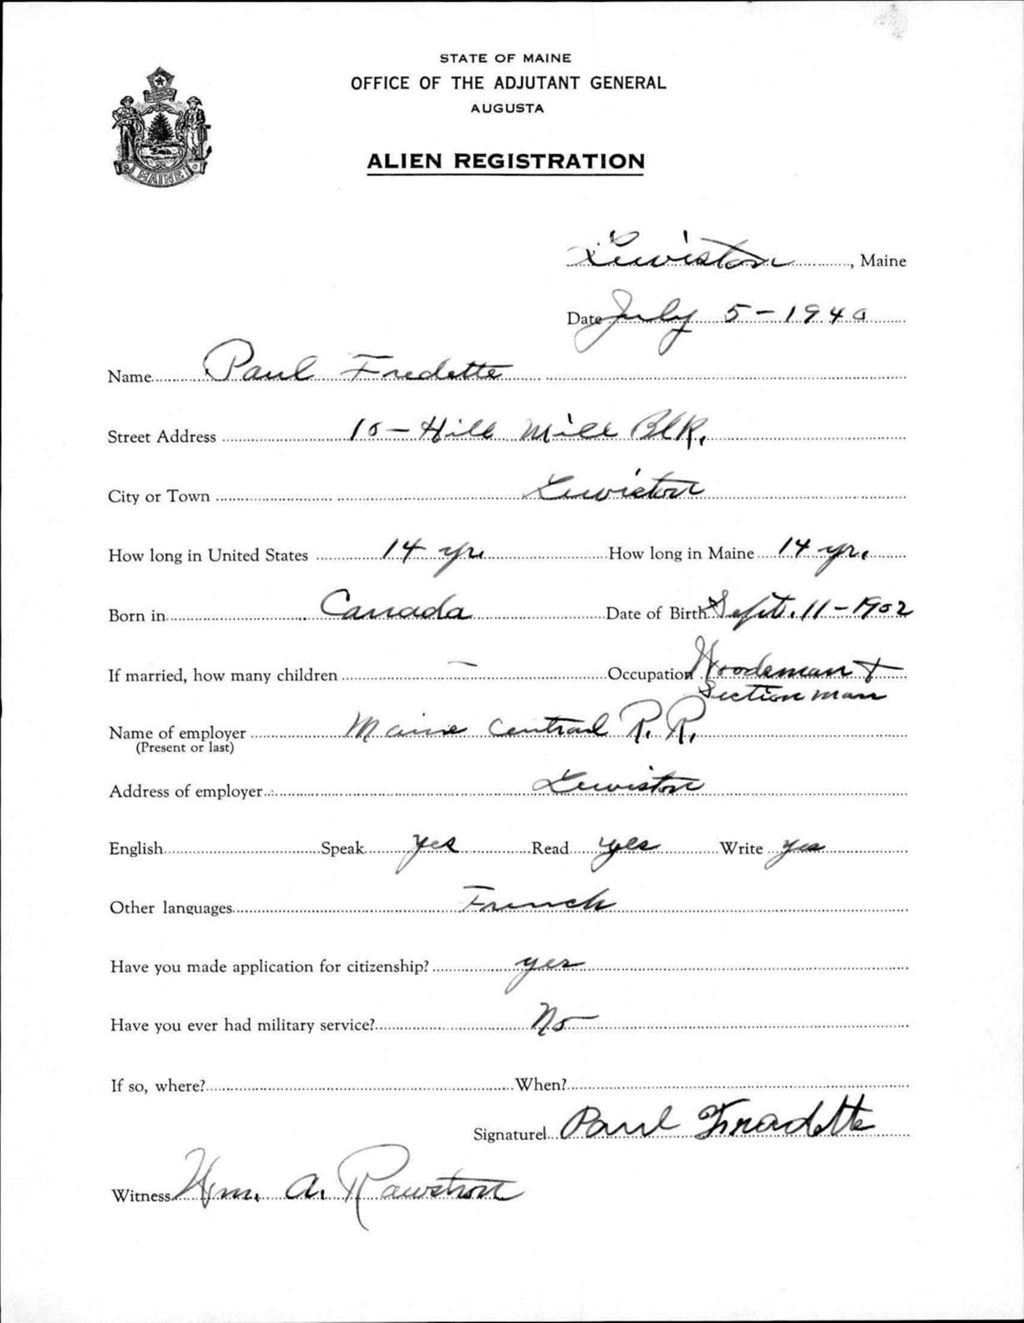 STATE OF MAINE
OFFICE OF THE ADJUTANT GENERAL
AUGUSTA
ALIEN REGISTRATION
MAINE
Lewiston, Maine
Date July 5-1940
Name Paul Fredette
Street Address 10 - Hill Mill Blk.
City or Town Lewiston
How long in United States 14 yrs How long in Maine 14 yrs.
Born in Canada Date of Birth Sept. 11-1902
If married, how many children — Occupation Woodsman &
Section man
Name of employer Maine Central R. R.
(Present or last)
Address of employer Lewiston
English Speak yes Read yes Write yes
Other languages French
Have you made application for citizenship? yes
Have you ever had military service? No
If so, where? When?
Signature Paul Fradette
Witness Wm. A. Rawstron